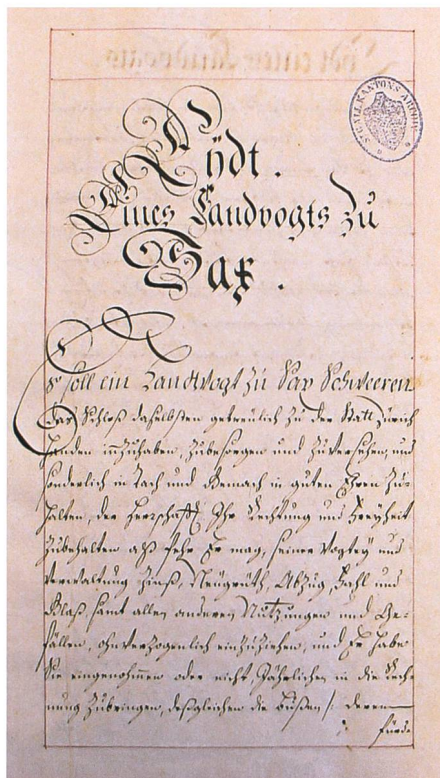 Eÿdt.
Eines Landvogts zu
Sax.
Es soll ein Landtvogt zu Sax Schweeren
Das Schloß daselbsten getreülich zu der Statt Zürich
Handen innzuhaben, zubesorgen und zuversehen, und
sonderlich in Tach und Gemach in guten Ehren zu-
halten, der Herrschafft Ihr Rechtung und Freyheit
zubehalten als sehr Er mag, seiner Vogteÿ und
verwaltung Zinß, Neügrüth, Abzug, Fahl und
Glaß, samt allen anderen Nutzungen und Ge-
fällen, ohnverzogenlich einzuziehen, und Er habe
Sie eingenohmen oder nicht, Jährlichen in die Rech-
nung zubringen, deßgleichen die Bußen /: deren
fürd-